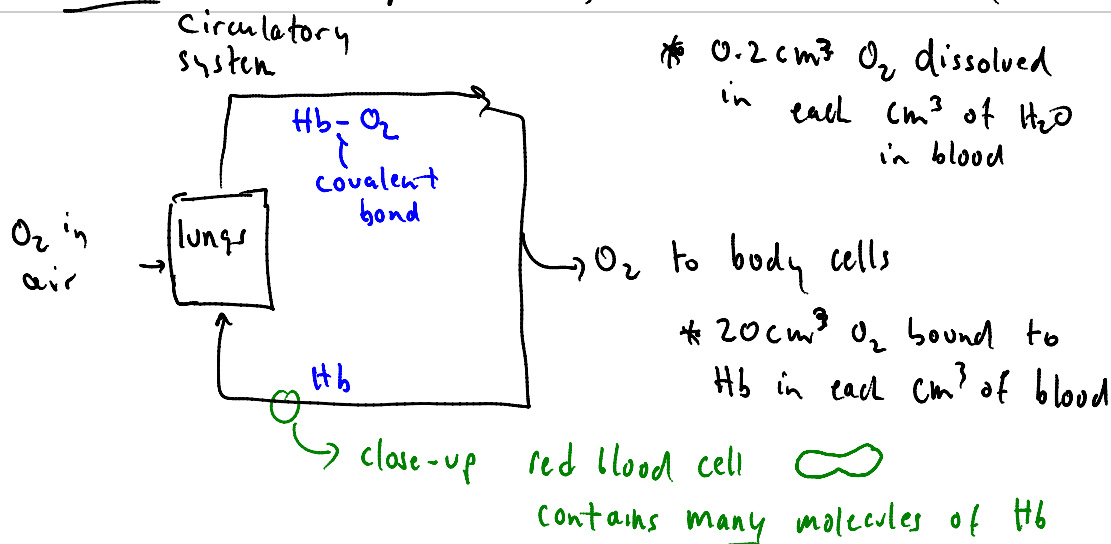 Circulatory
system
* 0.2 cm³ O₂ dissolved
in each cm³ of H₂O
in blood
Hb - O₂
covalent
bond
O₂ in
air
lungs
O₂ to body cells
* 20 cm³ O₂ bound to
Hb in each cm³ of blood
Hb
close-up red blood cell
contains many molecules of Hb